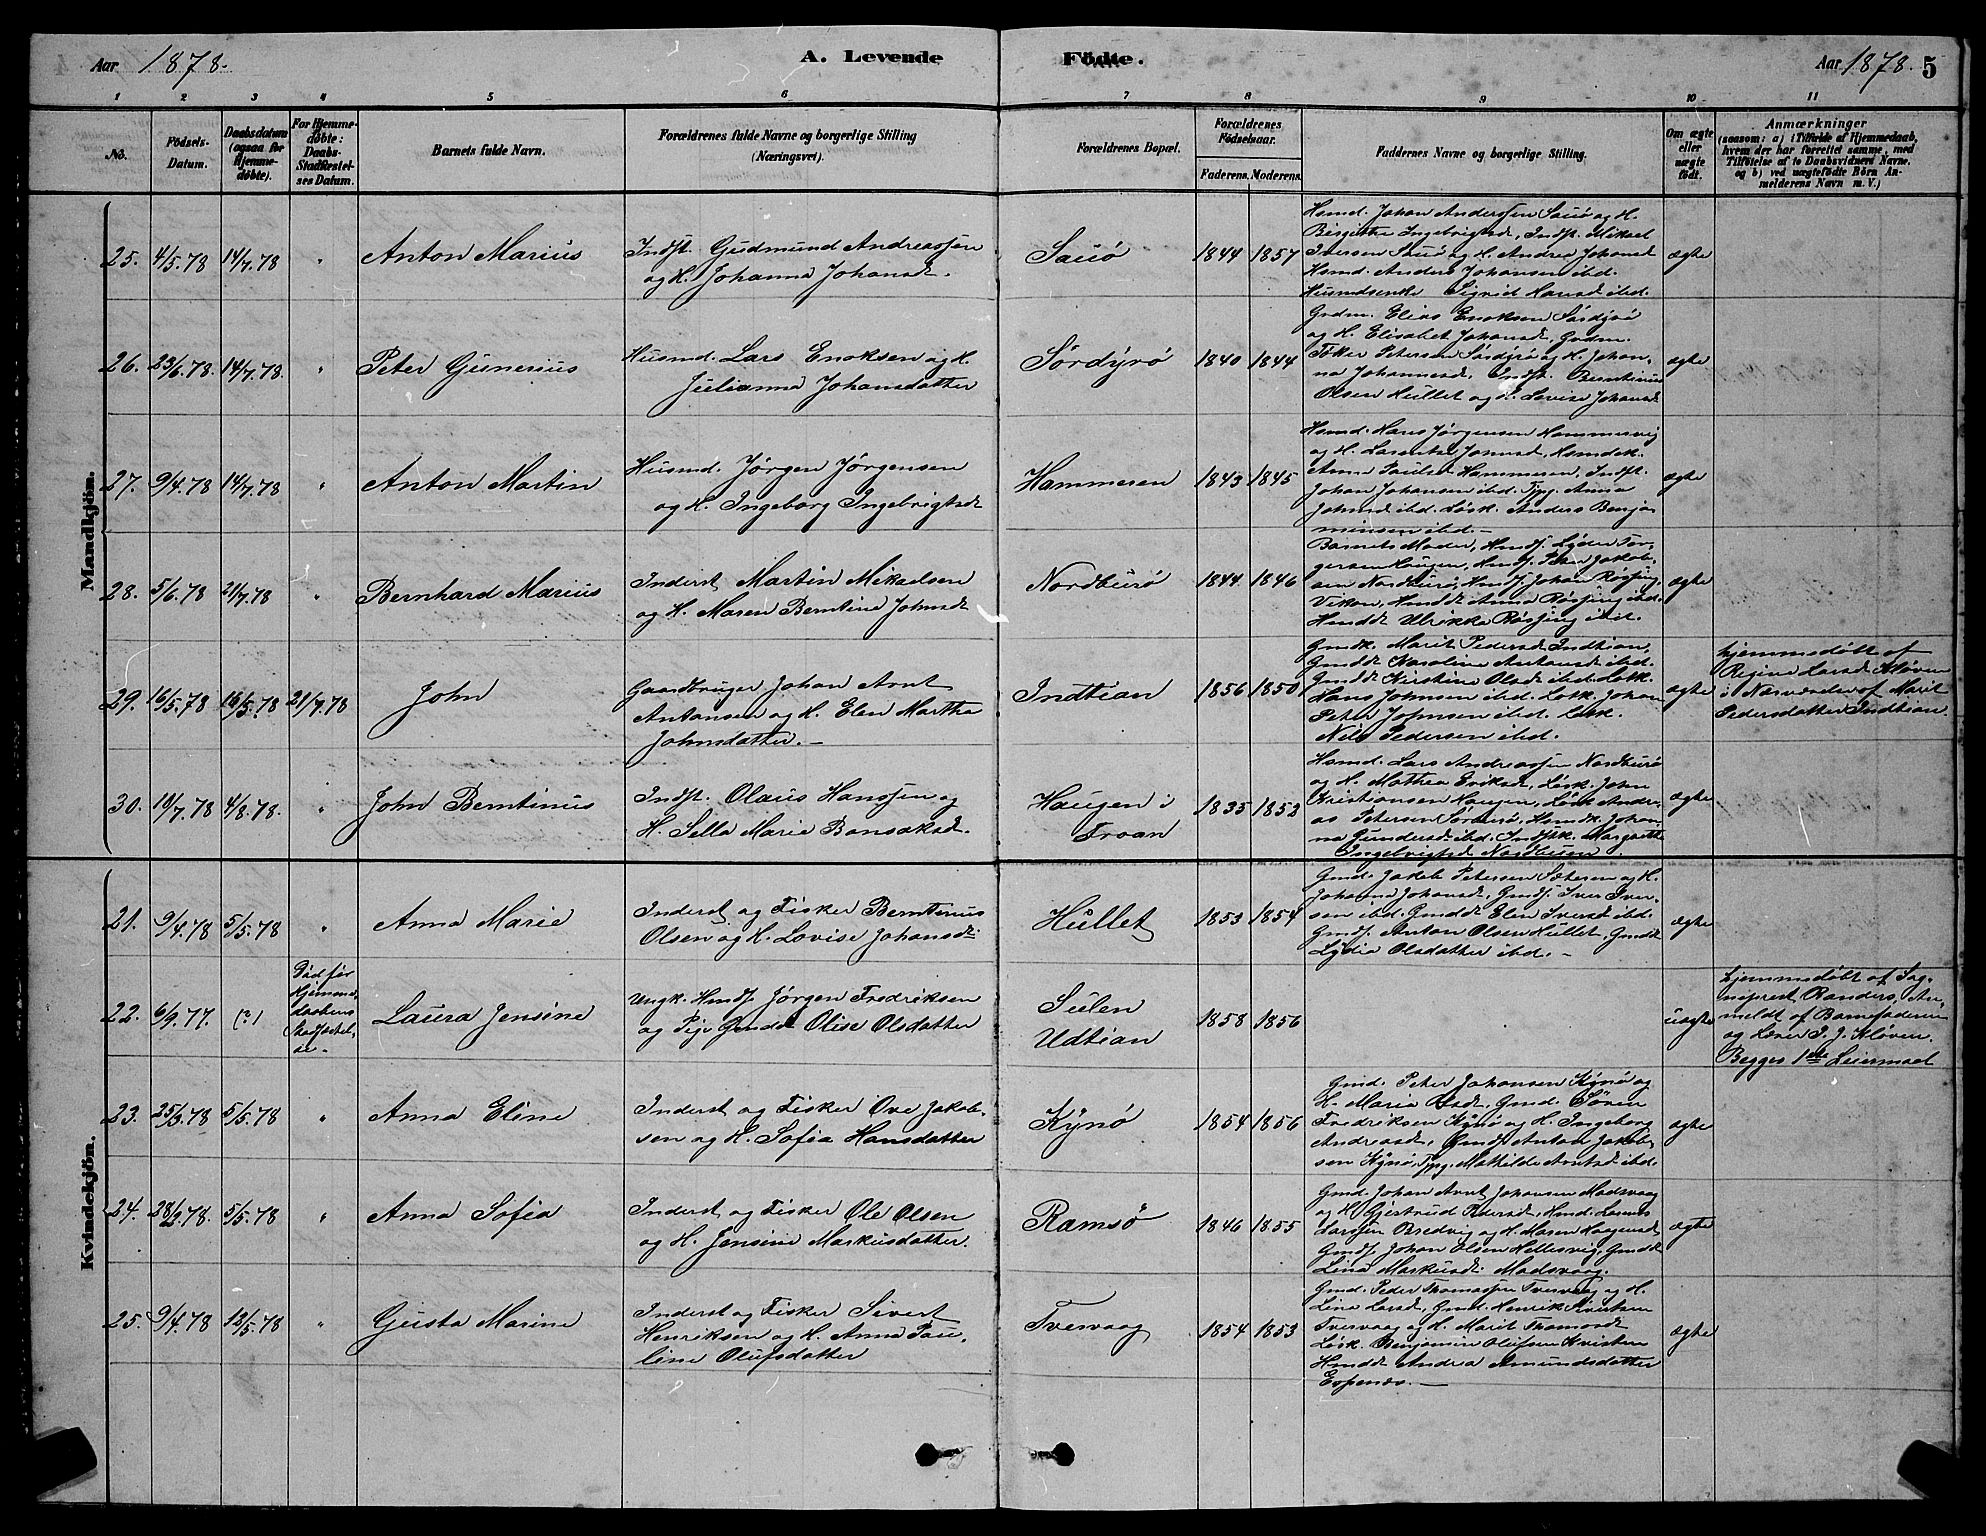 Aar 1878. A. Levende Fødte. Aar 1878. 5
1 2 3 4 5 6 7 8 9 10 11
No.
Födsels-
Datum.
Daabsdatum
(ogsaa for
Hjemme-
döbte).
For Hjemme-
döbte:
Daabs-
Stadfæstel-
ses Datum.
Barnets fulde Navn.
Forældrenes fulde Navne og borgerlige Stilling
(Næringsvei).
Forældrenes Bopæl.
Forældrenes
Födselsaar.
Faderens. Moderens.
Faddernes Navne og borgerlige Stilling.
Om ægte
eller
uægte
født.
Anmærkninger
(saasom: a) i Tilfælde af Hjemmedaab,
hvem der har forrettet samme, med
Tilföielse af to Daabsvidners Navne.
og b) ved uægtefödte Börn An-
melderens Navn m. V.)
Mandkjön.
25. 4/5.78 14/7.78 " Anton Marius
Indst. Gudmund Andreassen
og H. Johanna Johansd.
Sauø 1844 1857
Hsmd. Johan Anderssen Sauø og H.
Birgitha Ingebrigtsd, Indst. Mikael
Iversen Sauø og H. Andrea Johansd
Hsmd. Anders Johansen ibd.
Husmdsenke Sigrid Hansd ibd.
ægte
26. 23/6.78. 14/7.78. " Peter Gunerius
Husmd. Lars Enoksen og H.
Julianna Johansdatter
Sørdyrø 1840 1844
Grdm. Elias Enoksen Sørdyrø
og H. Elisabet Johansd, Grdm.
Petersen Sørdyrø og H. Johan-
na Johannesd, Indst. Berntinus
Olsen Hullet og H. Lovise Johansd
ægte
27. 9/4.78 14/7.78 " Anton Martin
Husmd. Jørgen Jørgensen
og H. Ingeborg Ingebrigtsd
Hammeren 1843 1845
Hsmd. Hans Jørgensen Hammervig
og H. Jonsd, Hsmdek.
Anna Hammeren, Indst.
Johan Johansen ibd. Tjpg. Anna
Johnsd ibd. Løsk. Anders Benja-
minsen ibd.-
ægte
28. 5/6.78 21/7.78 " Bernhard Marius
Inderst Martin Mikaelsen
og H. Maren Berntine Johnsd
Nordburø 1844. 1846
Barnets Moder, Tor-
gersen Haugen, Hmdf. Peter Jakob-
sen Nordburø, Hmdf. Johan Røsjing
Vikan, Hmddt Anna Røsjing ibd.
Hmddt Ulrikka Røsjing ibd.
ægte
29. 16/5.78 16/5.78 21/7.78 John
Gaardbruger Johan Arnt
Antonsen og H. Elen Martha
Johnsdatter. -
Indtian 1856 1850
Gmdk. Marit Pedersd Indtian,
Gmddt Karoline Antonsd ibd.
Gmddt Kirstine Olsd ibd. Løsk.
Hans Johnsen ibd. Løsk. Johan
Peter Johnsen ibd. Løsk.
Nils Pedersen ibd.
ægte
hjemmedøbt af
Regine Larsd Kløven
i Nærværelse af Marit
Pedersdatter Indtian.
30. 10/7.78 4/8.78. " John Berntinus
Indst. Olaus Hanssen og
H. Sella Marie Bonsaksd.
Haugen i
Froan
1835 1852
Hsmd. Lars Andreassen Nordburø
og H. Mathea Eriksd, Løsk. John
Kristiansen Haugen, Løsk Andre-
as Petersen Sørburø, Hsmdk. Johan-
na Gundersd ibd. Indstk. Margrethe
Ingebrigtsd Nordbuen.
ægte
Kvindekjön.
21. 9/4.78 5/5.78 " Anna Marie
Inderst og Fisker Berntinus
Olsen og H. Lovise Johansdt.
Hullet 1853 1854
Gmd. Jakob Petersen Sætesen og H.
Johanna Johansd, Gmdf. Iver Iver-
sen ibd. Gmddt Elen Iversd ibd.
Gmdf. Anton Olsen Hullet, Gmddt
Lydia Olsdatter ibd. -
ægte
22. 6/9.77. (?)
Død før
Hjemme-
daabens
Stadfæstel-
se-
Laura Jensine
Ungk. Hmdf Jørgen Fredriksen
og Pige Gmddt Olise Olsdatter
Sulen
Udtian
1858 1856
uægte
hjemmedøbt af Sog-
neprest Randers, An-
meldt af Barnefaderen
og Lærer I. J. Kløven.
Begges 1ste Leiermaal
23. 25/3.78 5/5.78 " Anna Eline
Inderst og Fisker Ove Jakob-
sen og H. Sofia Hansdatter
Kynø 1854 1856
Gmd. Peter Johansen Kynø og
H. Maria Olsd, Gmd. Søren
Fredriksen Kynø og H. Ingeborg
Andreasd, Gmdf Anton Jakob-
sen Kynø, Tjpg. Mathilde Arntsd ibd.
ægte
24. 28/2.78. 5/5.78 " Anna Sofia
Inderst og Fisker Ole Olsen
og H. Jensine Markusdatter.
Ramsø 1846 1855
Gmd. Johan Arnt Johansen Madsvaag
og H. Gjertrud Pedersd, Hmd.
Larssen Bredvig og H. Maren Haagensd
Gmdf Johan Olsen Hellesvig, Gmddt
Lina Markusdt. Madsvaag.
ægte
25. 9/4.78 12/5.78 " Gusta Marine
Inderst og Fisker Sivert
Henriksen og H. Anna Pau-
line Olufsdatter
Tvervaag 1854 1853
Gmd. Peder Thomassen Tvervaag og H.
Line Larsd, Gmd. Henrik
Tvervaag og H. Marit Thomasdt
Løsk. Benjamin Olufsen Kvisten
Hmddt Andrea Amundsdatter
Espenes. -
ægte